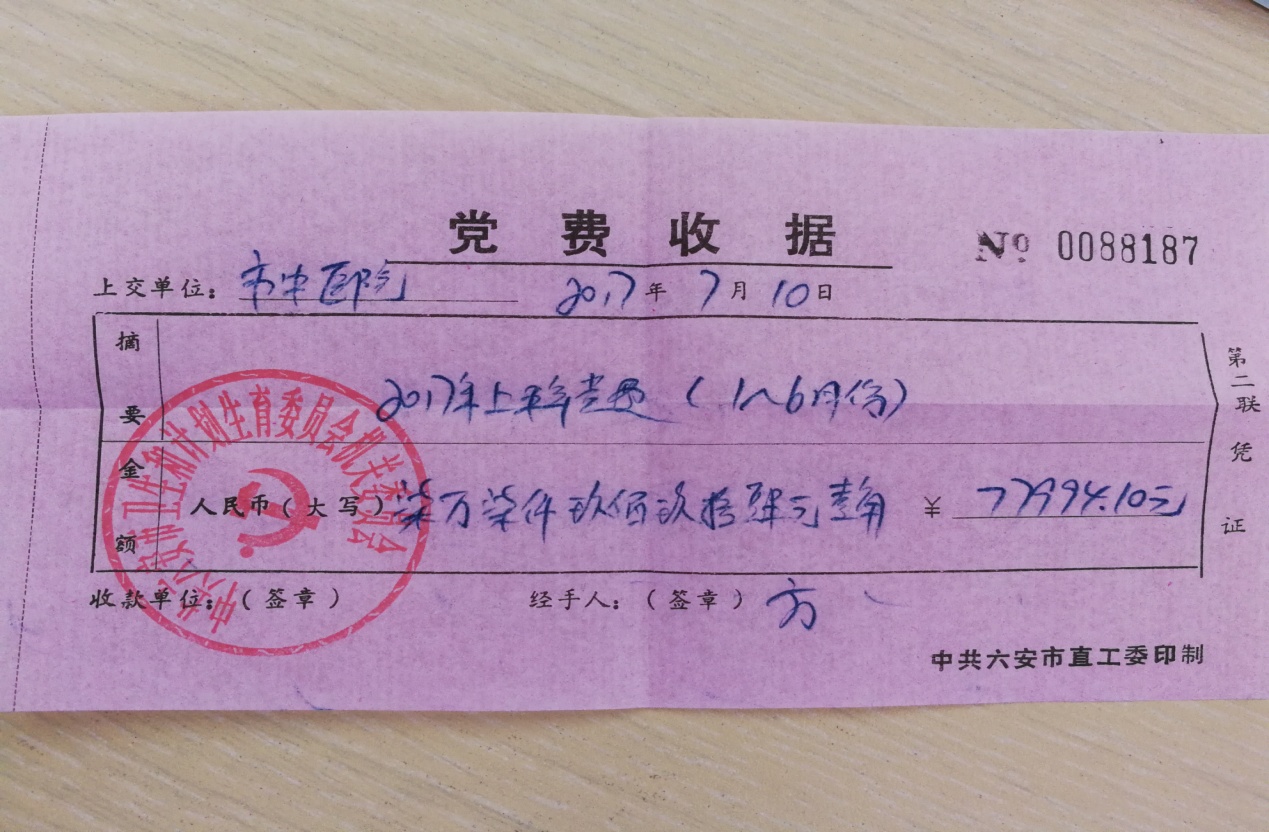 党费收据
No 0088187
上交单位：市中医院 2017年7月10日
摘要 2017年上半年党费（1~6月份）
金额 人民币（大写）柒万柒仟玖佰玖拾肆元壹角 ￥77994.10元
收款单位：（签章） 经手人：（签章）方
中共六安市直工委印制
第二联 凭证
中共六安市卫生和计划生育委员会机关委员会